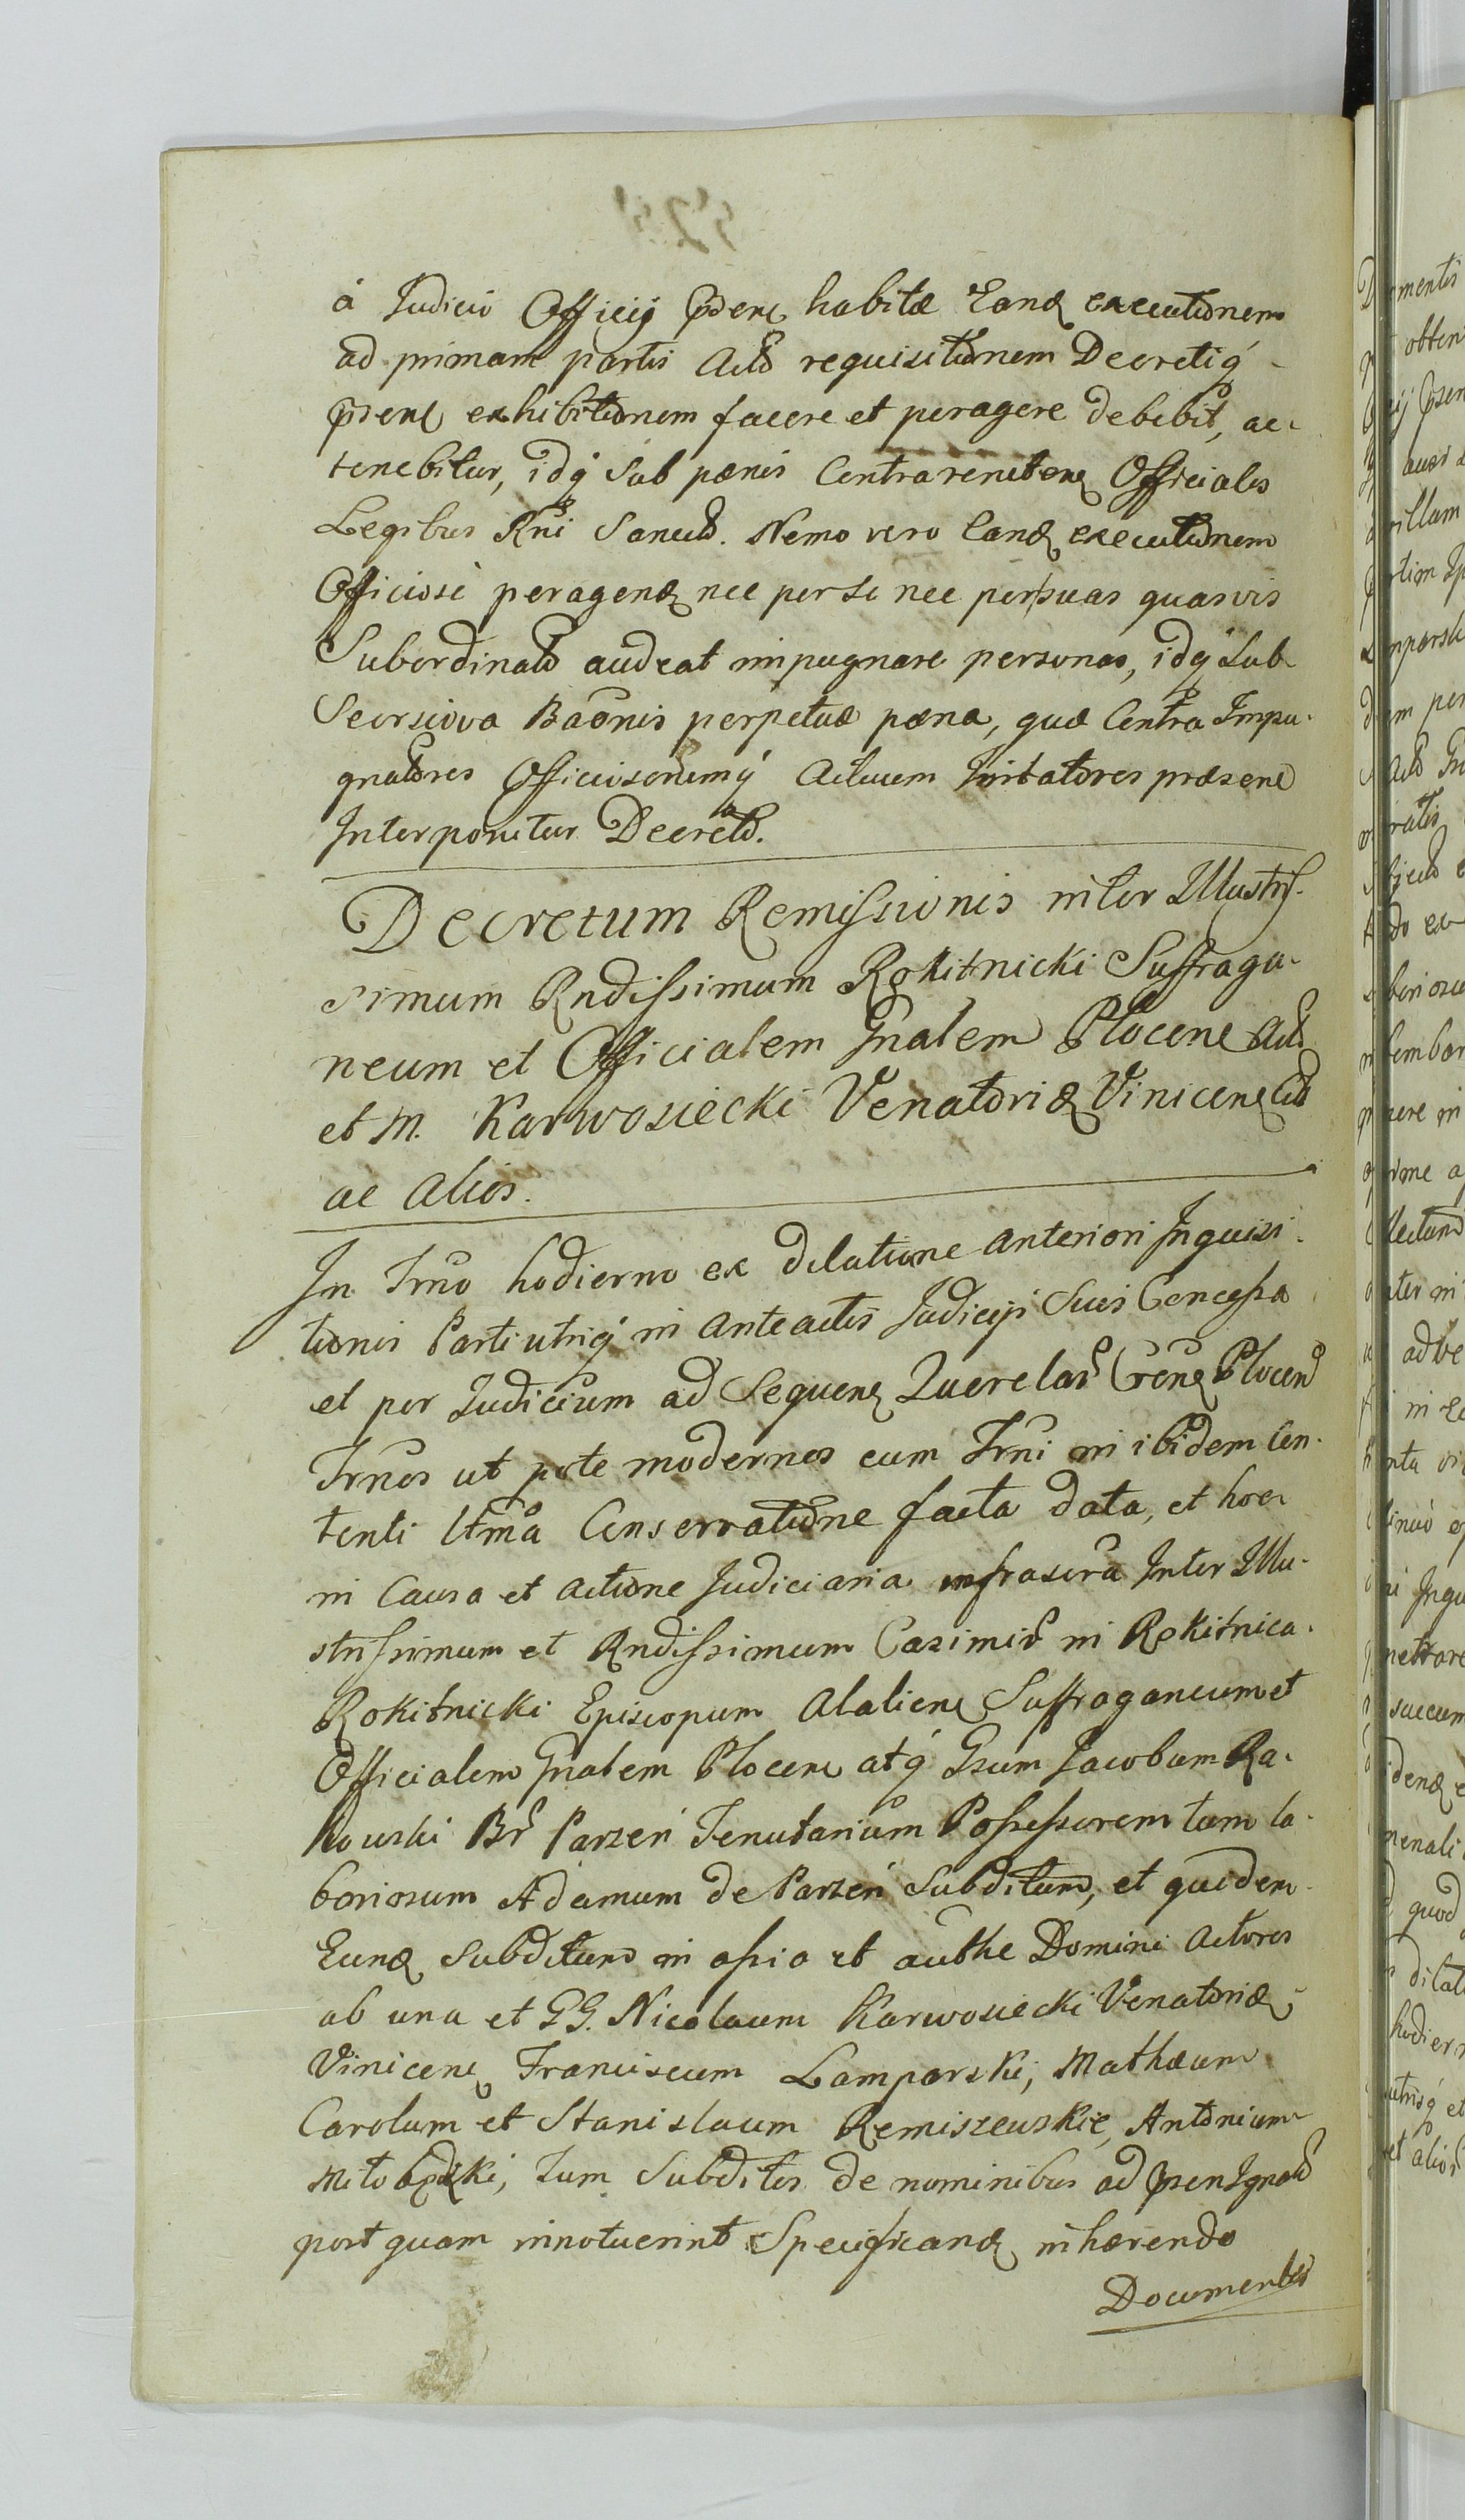 à Judicio Officij psens habitæ Eand executionem
ad primam partis Acto requisitionem Decretiq
psens exhibitionem facere et peragere debebit, ac
tenebitur, idq sub pænis Contra renitens Officiales
Legibus Rni Sancito. Nemo vero Eand executionem
Officiosè peragend nec per se nec per suas quasvis
Subordinato audeat impugnare personas, idq sub
Seorsiova Baonis perpetuæ pæna, quæ Contra Impu-
gnatores Officiosorumq Actuum Irritatores præsens
Interponitur Decreto.
Decretum Remissionis inter Illustris-
simum Rndissimum Rokitnicki Suffraga-
neum et Officialem Gnalem Plocens Acto
et M. Karwosiecki Venatorid Vinicens Cito
ac alios.
In Trno hodierno ex dilatione anteriori Inquisi-
tionis Parti utriq in anteactis Judicijs suis Concessa
et per Judicium ad sequens Querelar Grens Plocens
Trnos ut pote modernos cum Trni in ibidem Con-
tenti ltma Conservatione facta data, et hoc
in Causa et actione Judiciaria infrascra Inter Illu-
strissimum et Rndissimum Casimir in Rokitnica
Rokitnicki Episcopum Alaliens Suffraganeum et
Officialem Gnalem Plocens atq Gsum Jacobum Ra-
kowski Br Parzeń Tenutarium Possessorem tum la-
boriosum Adamum de Parzeń Subditum, et quidem
Eund Subditum in assia et authe Domini Actores
ab una et GG. Nicolaum Karwosiecki Venatorid
Vinicens, Franciscum Lamparski, Mathæum
Carolum et Stanislaum Remiszewskie, Antonium
Miłobędzki, Tum Subditos de nominibus ad psens Ignoto
post quam innotuerint Specificand inhærendo
Documentis